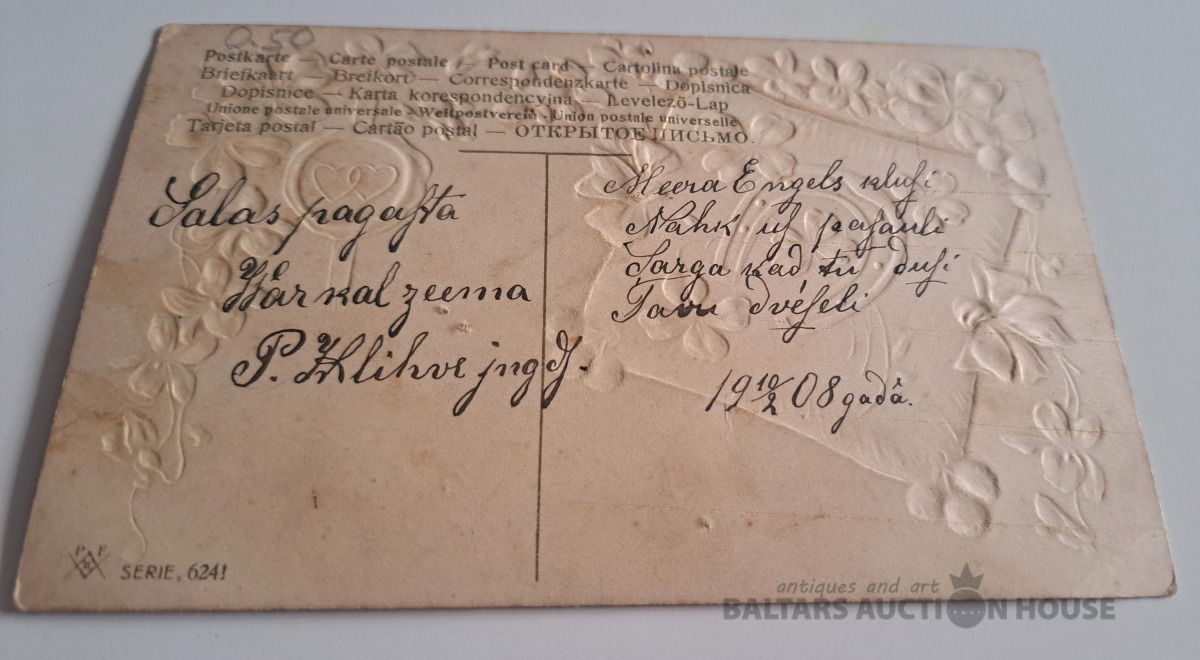 0.50
Postkarte — Carte postale — Post card — Cartolina postale
Briefkaart — Brefkort — Correspondenzkarte — Dopisnica
Dopisnice — Karta korespondencyjna — Levelező-Lap
Unione postale universale - Weltpostverein - Union postale universelle
Tarjeta postal — Cartão postal — ОТКРЫТОЕ ПИСЬМО.
Salas pagasta
Warkalzeema
P. Klihve
Meera Engels klusi
Nahk us pasauli
Sarga kad tu dusi
Tavu dvéseli
19 10/2 08 gadâ.
P F
B
SERIE, 6241
antiques and art
BALTARS AUCTION HOUSE